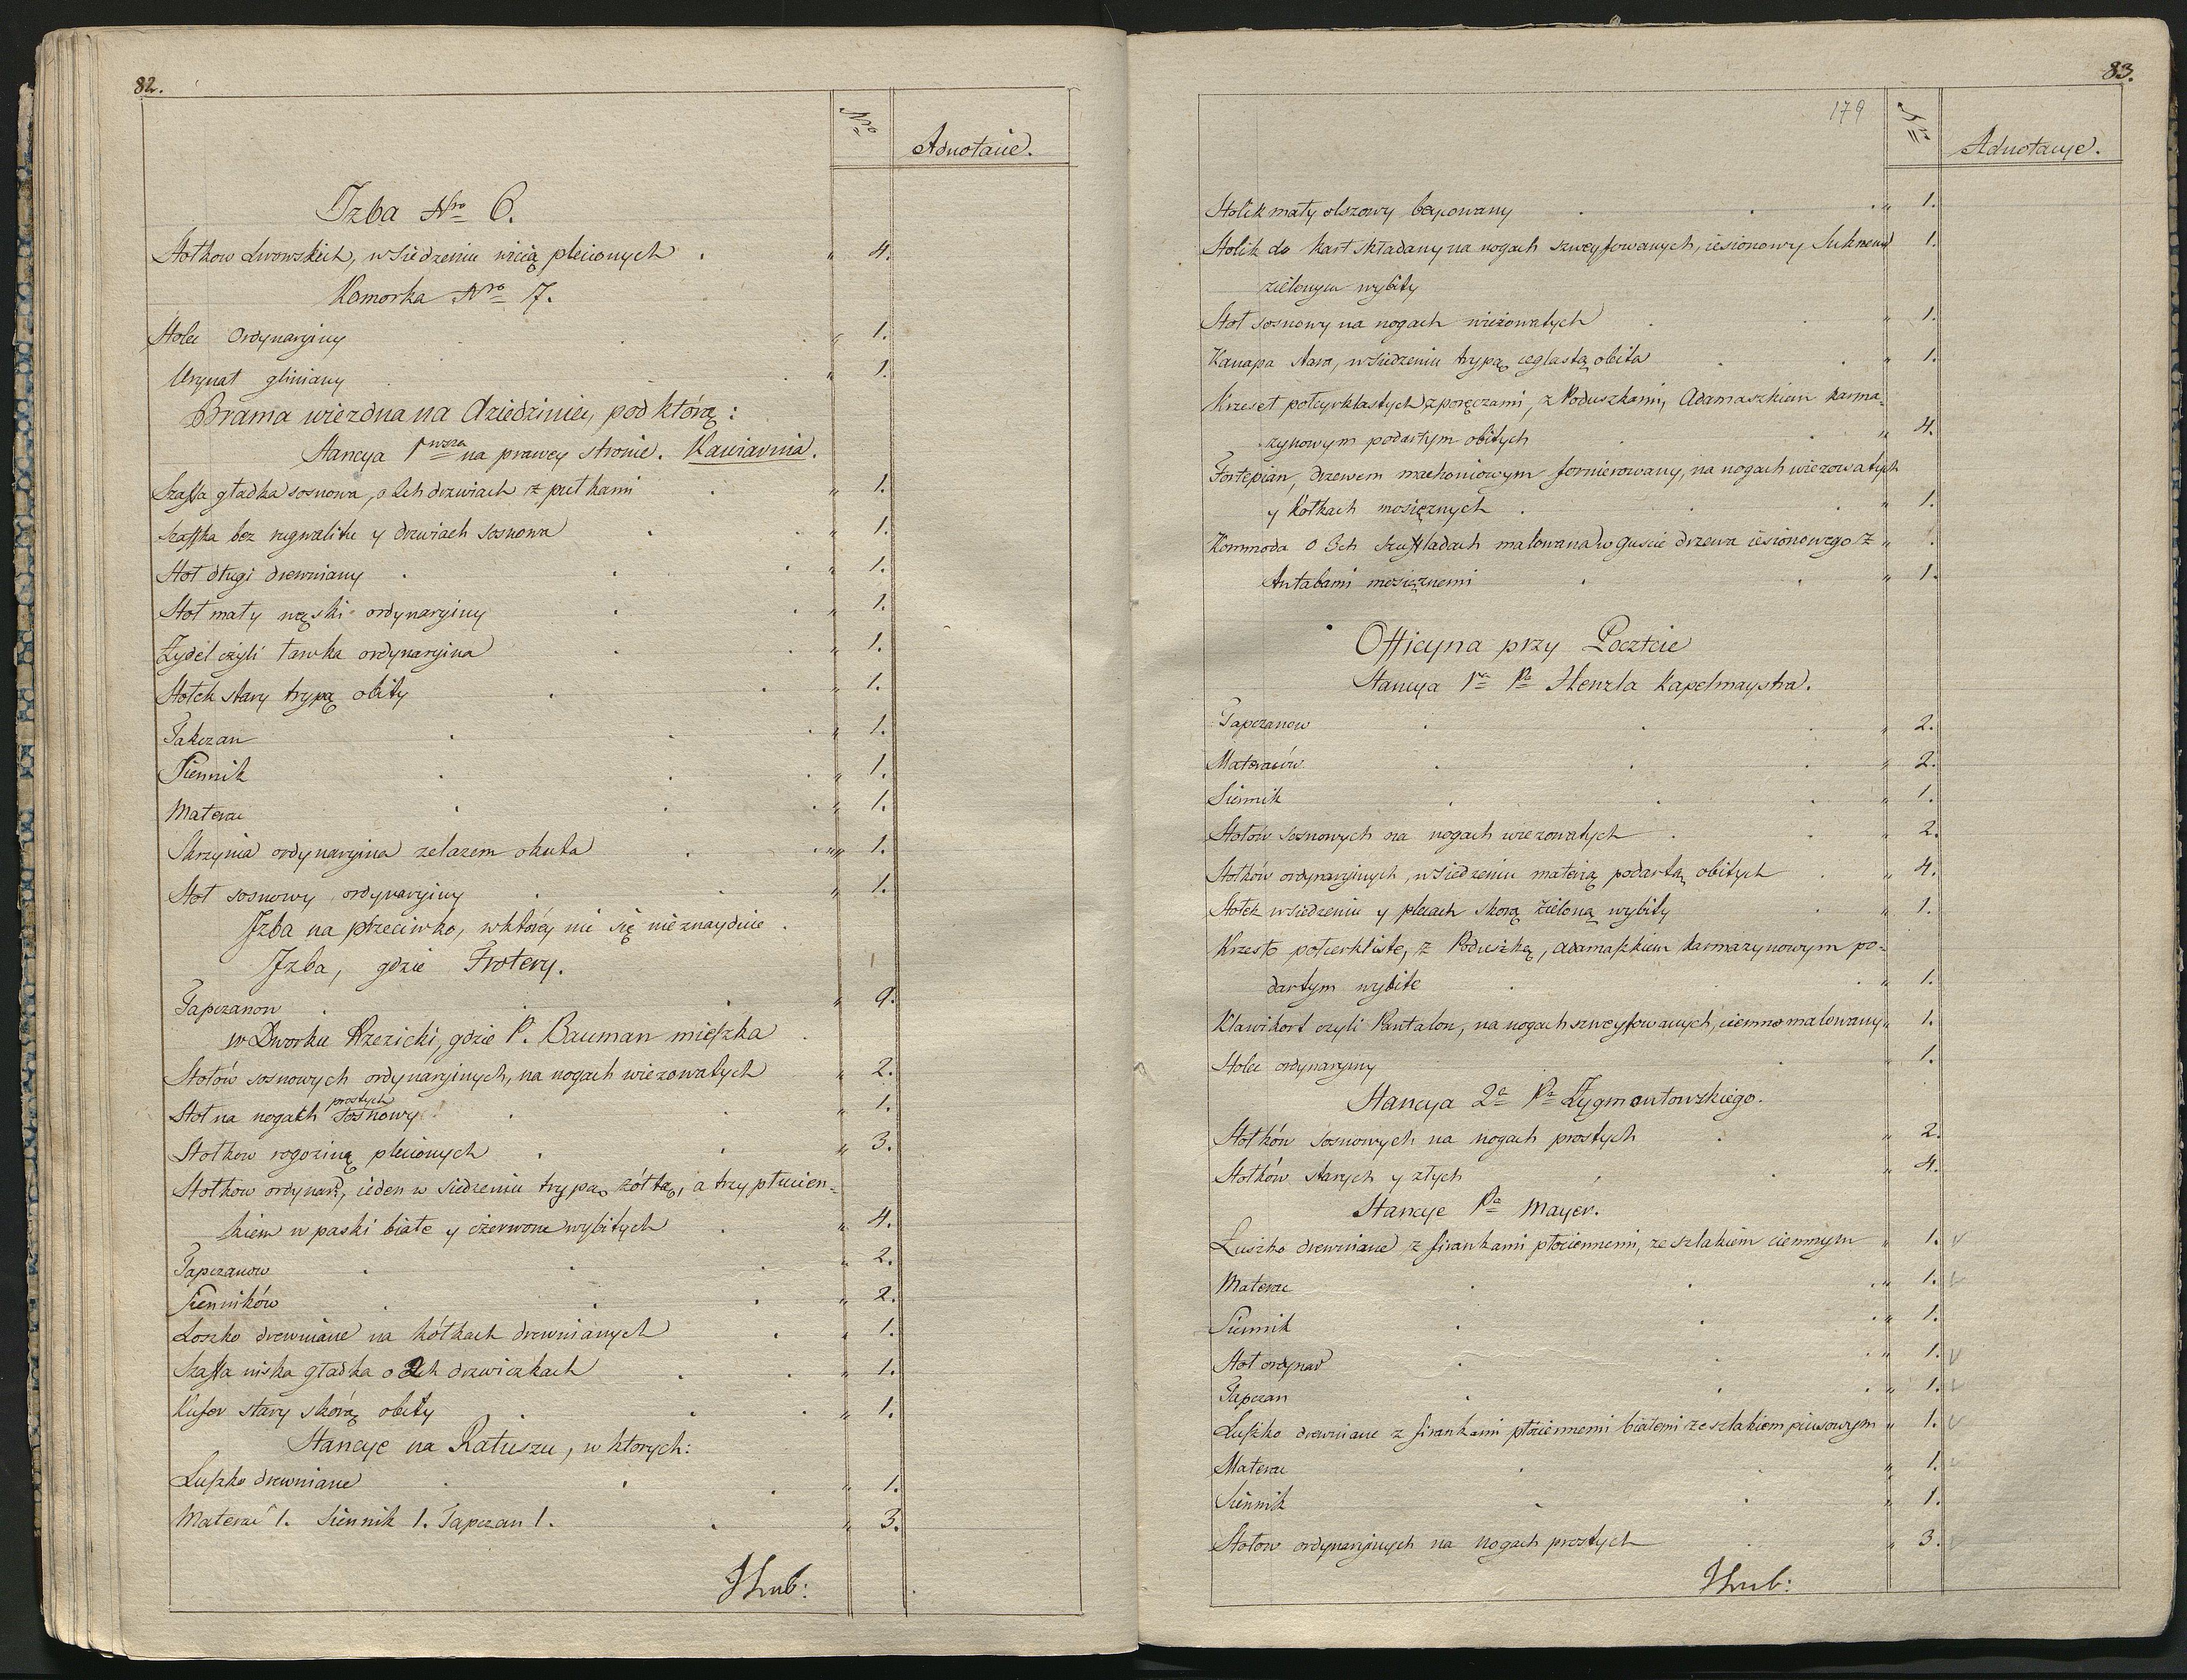 82.
Nro Adnotacie.
Izba Nro 6.
Stołkow Lwowskich, w Siedzeniu wicią plecionych „ 4.
Komorka Nro 7.
Stolec Ordynaryiny „ 1.
Urynał gliniany „ 1.
Brama wiezdna na dziedziniec, pod którą:
Stancya 1wsza na prawey stronie. Kawiarnia.
Szaffa gładka sosnowa, o 2ch drzwiach z pułkami „ 1.
Szaffka bez rygwalitu y drzwiach sosnowa „ 1.
Stoł długi drewniany „ 1.
Stoł mały wąski ordynaryiny „ 1.
Zydel czyli ławka ordynaryina „ 1.
Stołek stary trypą obity „ 1.
Tapczan „ 1.
Siennik „ 1.
Materac „ 1.
Skrzynia ordynaryina zelazem okuta „ 1.
Stoł sosnowy ordynaryiny „ 1.
Izba na przeciwko, w którey nic się nie znayduie.
Izba, gdzie Frotery.
Tapczanow „ 9.
w Dworku Rzezicki, gdzie P. Bauman mięszka
Stołów sosnowych ordynaryinych, na nogach wiezowatych „ 2.
Stoł na nogach prostych sosnowy „ 1.
Stołkow rogoziną plecionych „ 3.
Stołkow ordynar, ieden w Siedzeniu trypą żółtą, a trzy płucien-
kiem w paski białe y czerwone wybitych „ 4.
Tapczanow „ 2.
Sienników „ 2.
Loszko drewniane na kółkach drewnianych „ 1.
Szaffa niska gładka o 2ch drzwiczkach „ 1.
Kufer stary skórą obity „ 1.
Stancye na Ratuszu, w ktorych:
Luszko drewniane „ 1.
Materac 1. Siennik 1. Tapczan 1. „ 3.
83.
179
Nro Adnotacye.
Stolik mały olszowy beycowany „ 1.
Stolik do kart składany na nogach szweyfowanych, iesionowy Suknem 1.
zielonym wybity
Stoł sosnowy na nogach wieżowatych „ 1.
Kanapa stara, w siedzeniu trypą ceglastą obita „ 1.
Krzeseł połcyrklastych z poręczami, z Poduszkami, Adamaszkiem karma-
zynowym podartym obitych „ 4.
Fortepian, drzewem machoniowym fornierowany, na nogach wiezowatych
y kołkach mosiężnych „ 1.
Kommoda o 3ch szufladach malowana w guscie drzewa iesionowego z „
Antabami mosiężnemi „ 1.
Officyna przy Poczcie
Stancya 1wsza Pa Henzla Kapelmaystra.
Tapczanow „ 2.
Materaców „ 2.
Siennik „ 1.
Stołów sosnowych na nogach wiezowatych „ 2.
Stołków ordynaryinych, w siedzeniu materią podartą obitych „ 4.
Stołek w siedzeniu y plecach skorą zieloną wybity „ 1.
Krzesło połcerkliste, z Poduszką, adamaszkiem karmazynowym po-
dartym wybite „ 1.
Klawikort czyli Pantalon, na nogach szweyfowanych, ciemno malowany „ 1.
Stolec ordynaryiny „ 1.
Stancya 2a Pa Zygmontowskiego.
Stołków sosnowych na nogach prostych „ 2.
Stołków starych y złych „ 4.
Stancye Pa Mayer.
Łuszko drewniane z firankami płóciennemi, ze szlakiem ciemnym „ 1.
Materac „ 1.
Siennik „ 1.
Stoł ordynar „ 1.
Tapczan „ 1.
Luszko drewniane z firankami płóciennemi białemi ze szlakiem piusowym „ 1.
Materac „ 1.
Siennik „ 1.
Stołow ordynaryinych na nogach prostych „ 3.